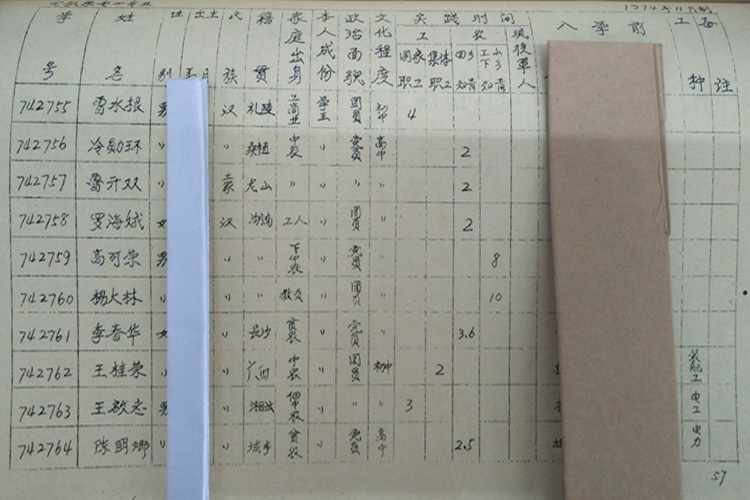 学号 姓名 性别 出生 民族 籍贯 家庭出身 本人成份 政治面貌 文化程度 实践时间 入学前 工种 备注
工 农 现役军人
国家职工 集体职工 回乡知青 上山下乡知青
742755 男 汉 礼陵 工商业 学生 团员 初中 4
742756 冷勋环 〃 〃 桑植 中农 〃 党员 高中 2
742757 〃 龙山 〃 〃 〃 〃 2
742758 罗海娥 女 汉 湖南 工人 〃 团员 〃 2
742759 高可荣 男 〃 〃 下中农 〃 党员 〃 8
742760 杨大林 〃 〃 〃 教员 〃 团员 〃 10
742761 李春华 女 〃 长沙 贫农 〃 党员 〃 3.6
742762 王桂荣 〃 〃 广西 中农 〃 团员 初中 2 装配工
742763 男 〃 〃 〃 〃 3 电工
742764 陈明娜 〃 〃 贫农 〃 党员 高中 2.5 电力
57